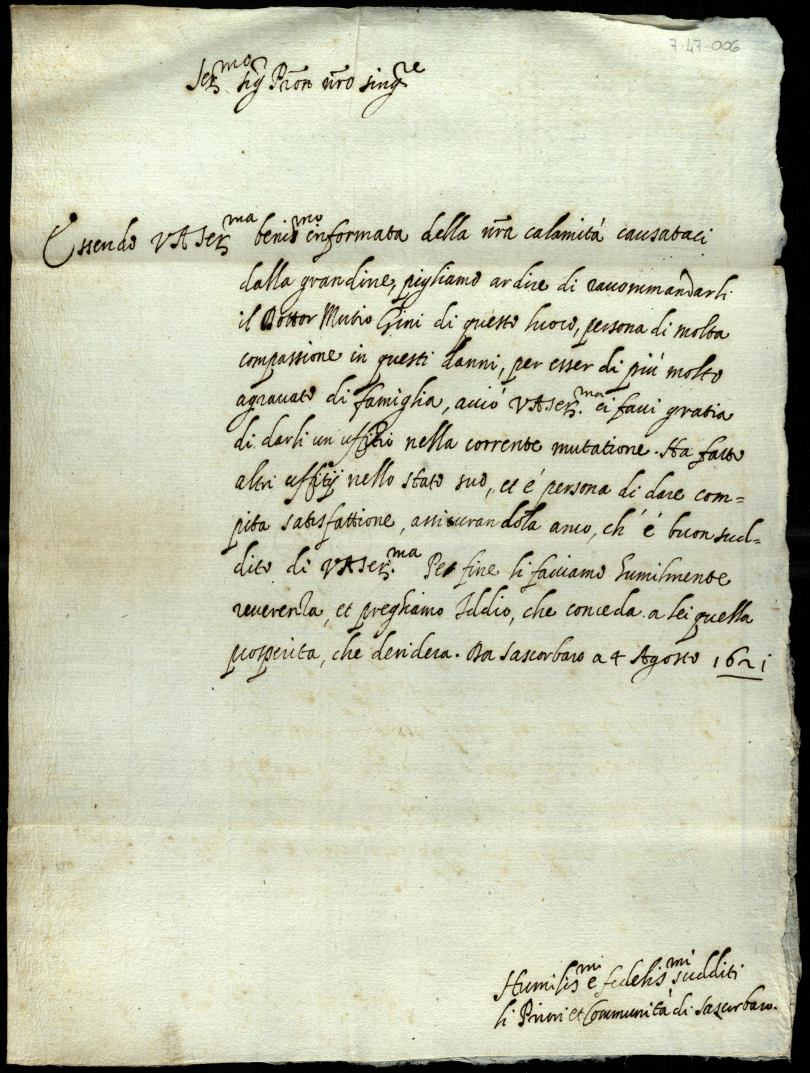 7-47-006
Ser.mo Sig.r Pron nro sing.re
Essendo V A Ser.ma benis.mo informata della nra calamità causataci
dalla grandine, pigliamo ardire di raccommandarli
il Dottor Mutio Gini di questo luoco, persona di molta
compassione in questi danni, per esser di più molto
agravato di famiglia, acciò V A Ser.ma ci facci gratia
di darli un uffitio nella corrente mutatione. Ha fatto
altri uffitij nello stato suo, et è persona di dare com=
pita satisfattione, assicurandola anco, ch' è buon sud=
dito di V A Ser.ma Per fine li facciamo humilmente
reverenza, et preghiamo Iddio, che conceda a lei quella
prosperità, che desidera. Da Sascorbaro a 4 Agosto 1621
Humilis.mi e fedelis.mi sudditi
li Priori et Communità di Sascorbaro.